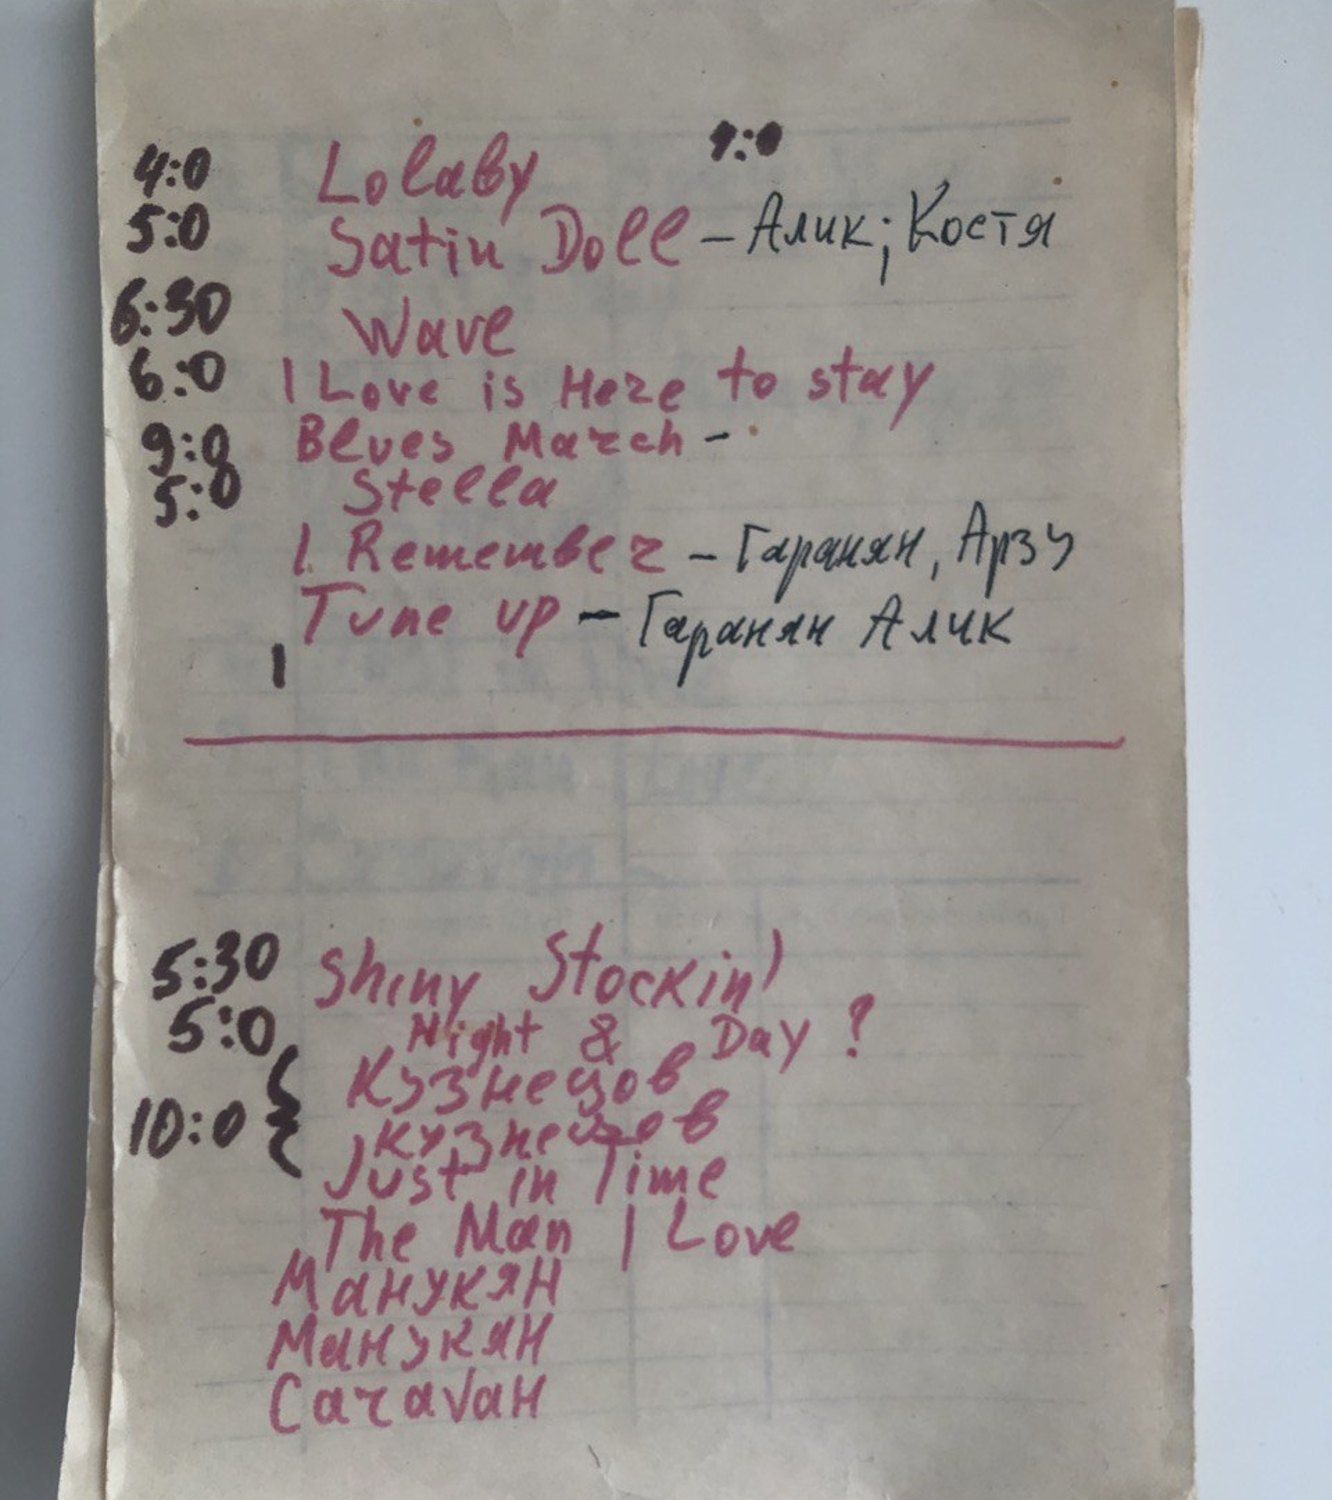 4:0 Lolaby 9:0
5:0 Satin Doll – Алик; Костя
6:30 Wave
6:0 I Love is Here to stay
9:0 Blues March –
5:0 Stella
I Remember – Гаранян, Арзу
Tune up – Гаранян Алик
I
5:30 Shiny Stockin'
5:0 Night & Day ?
Кузнецов
10:0 { Кузнецов
Just in Time
The Man I Love
Манукян
Манукян
Caravaн